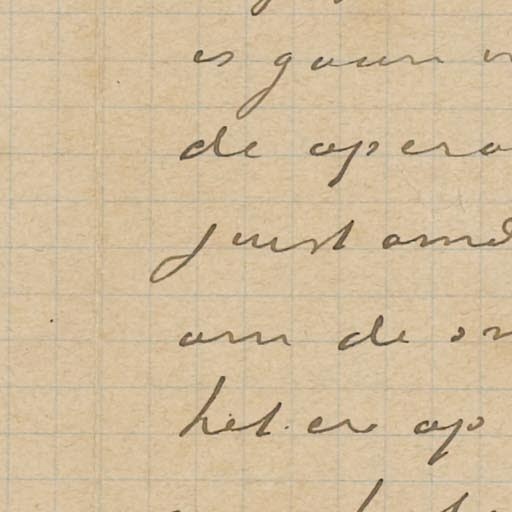 es gaan
de opera
juist omd
om de
het er op